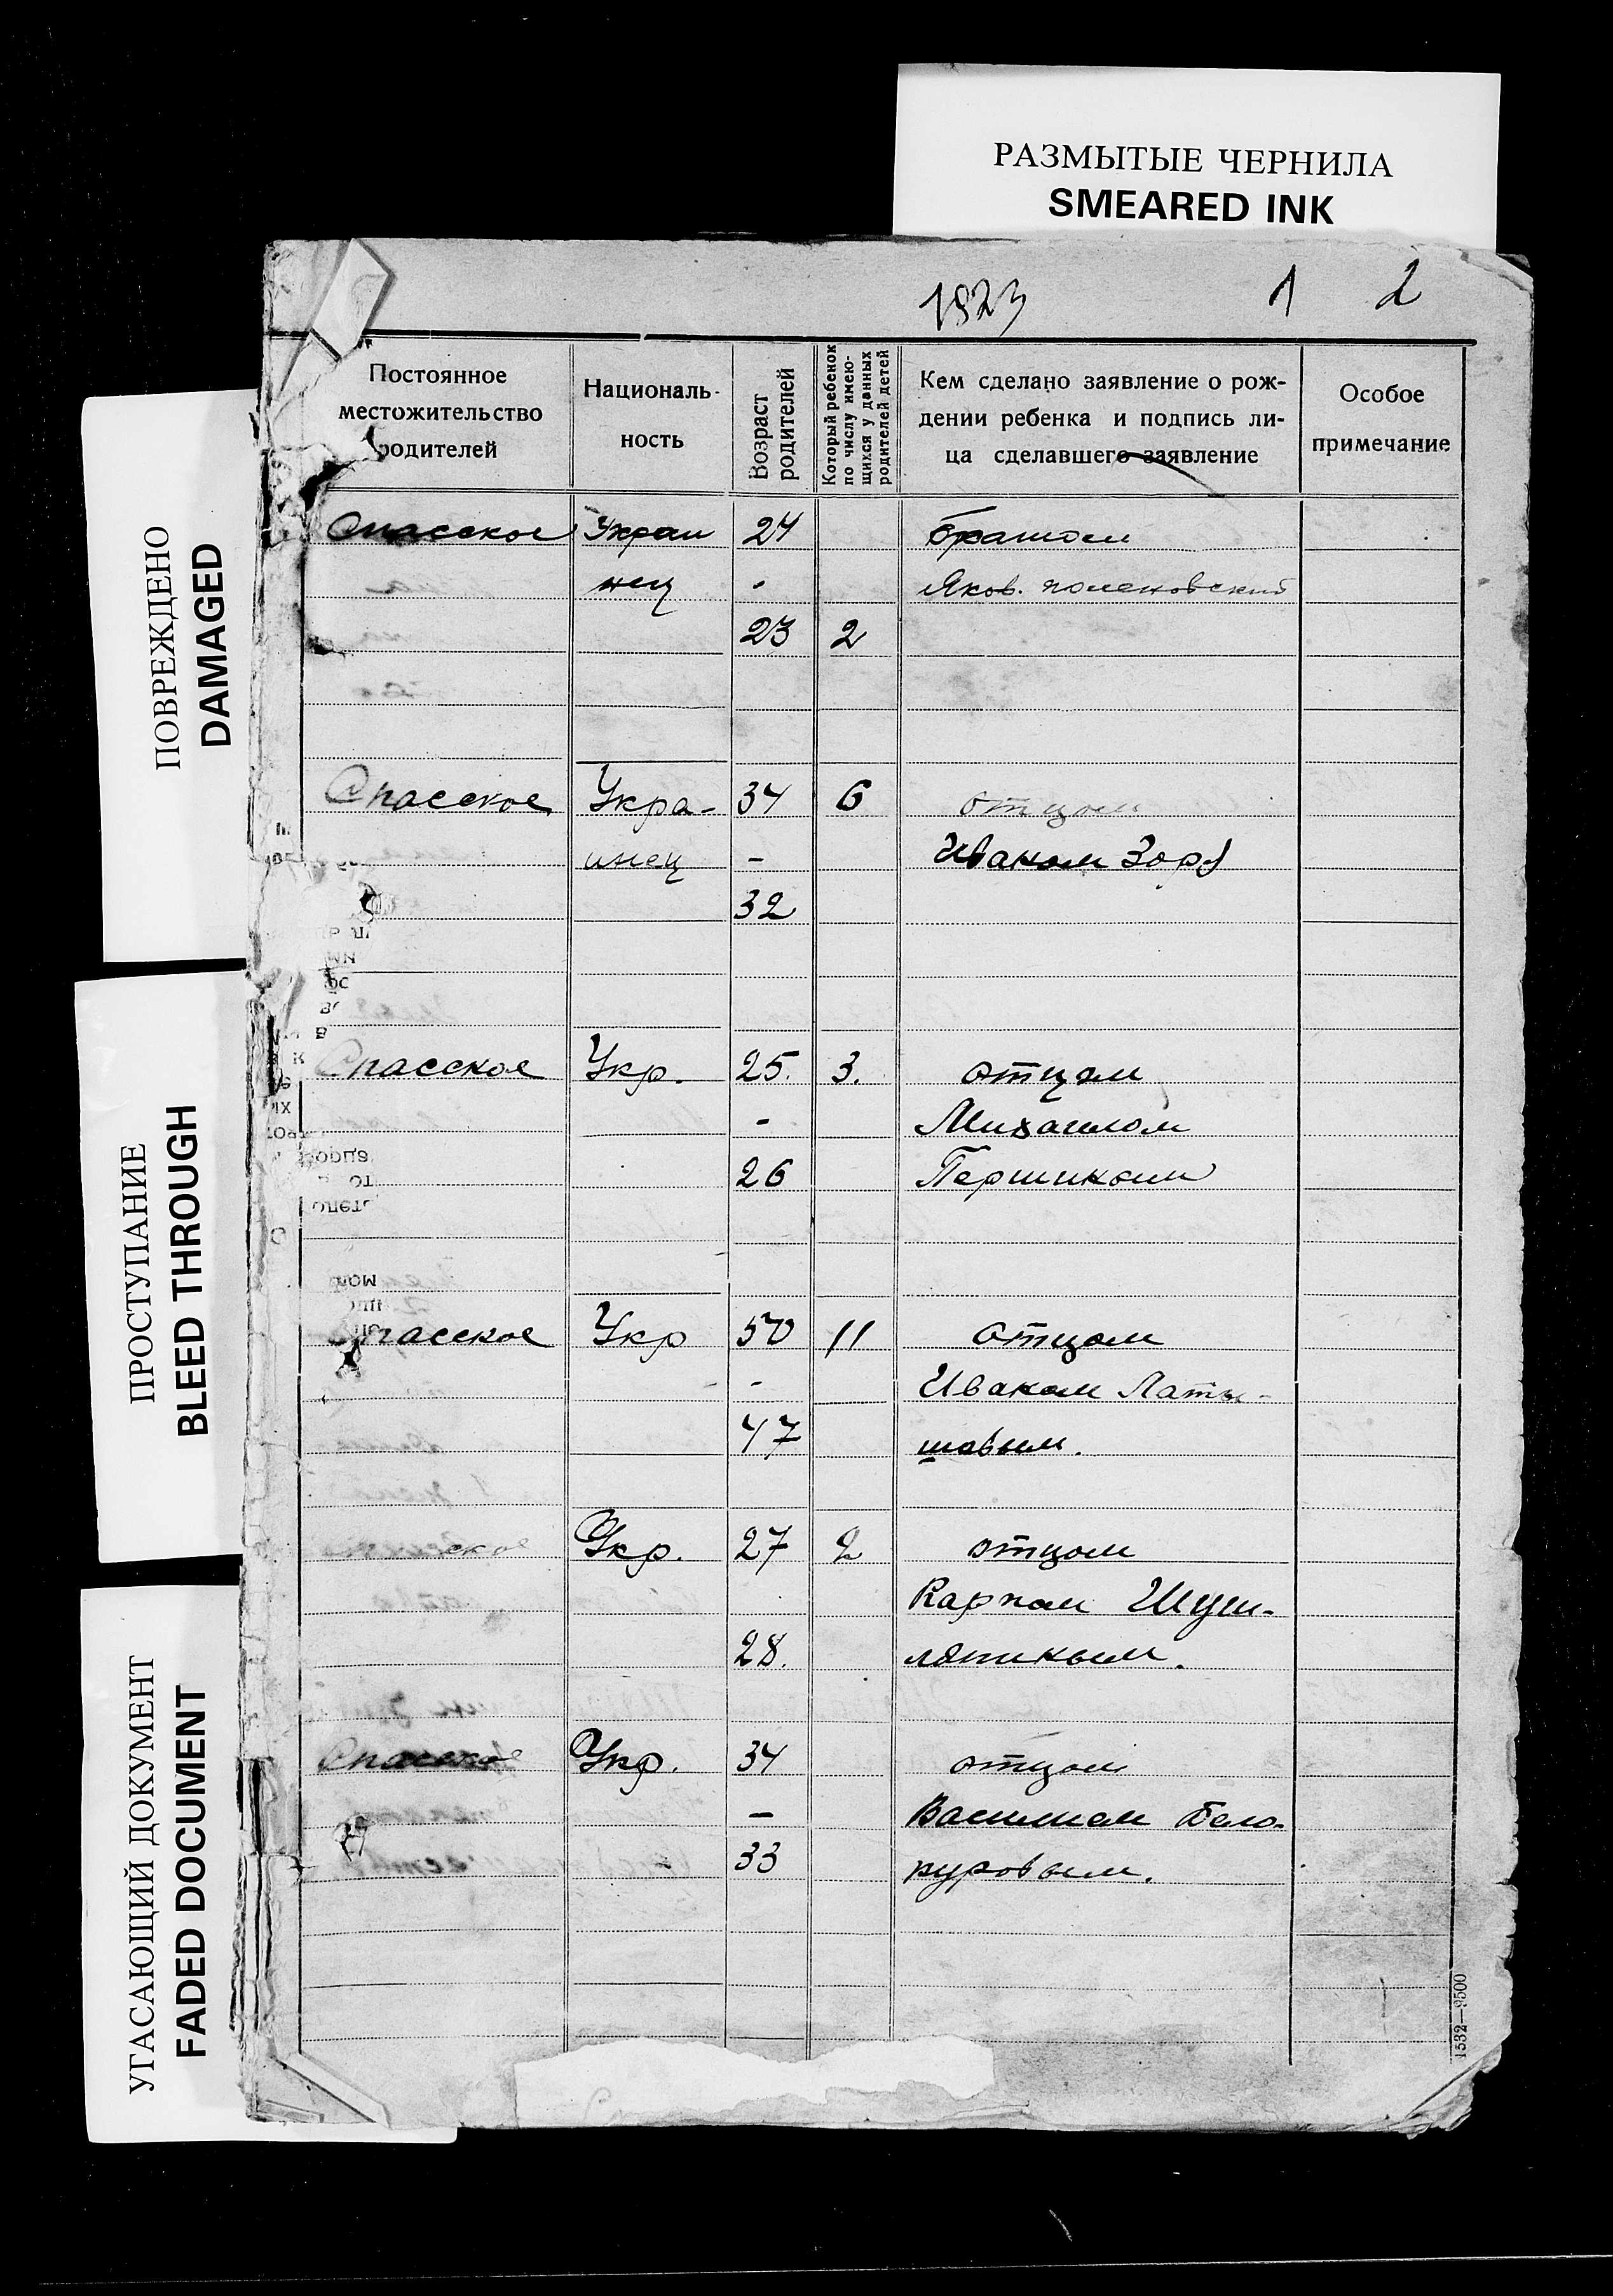 РАЗМЫТЫЕ ЧЕРНИЛА
SMEARED INK
ПОВРЕЖДЕНО
DAMAGED
ПРОСТУПАНИЕ
BLEED THROUGH
УГАСАЮЩИЙ ДОКУМЕНТ
FADED DOCUMENT
1923 1 2
Постоянное
местожительство
родителей
Националь-
ность
Возраст
родителей
Который ребенок
по числу имею-
щихся у данных
родителей детей
Кем сделано заявление о рож-
дении ребенка и подпись ли-
ца сделавшего заявление
Особое
примечание
Спасское Украи 24 братом
нец - Яков.
23 2
Спасское Укра- 34 6 отцом
инец - Иваном
32
Спасское Укр. 25. 3. отцом
- Михаилом
26 Першиком
Спасское Укр 50 11 отцом
- Иваном Латы-
47 шовым.
Укр. 27 2 отцом
Карпом
28.
Спасское Укр. 34 отцом
- Василием Бело-
33 куровым.
1532—9500